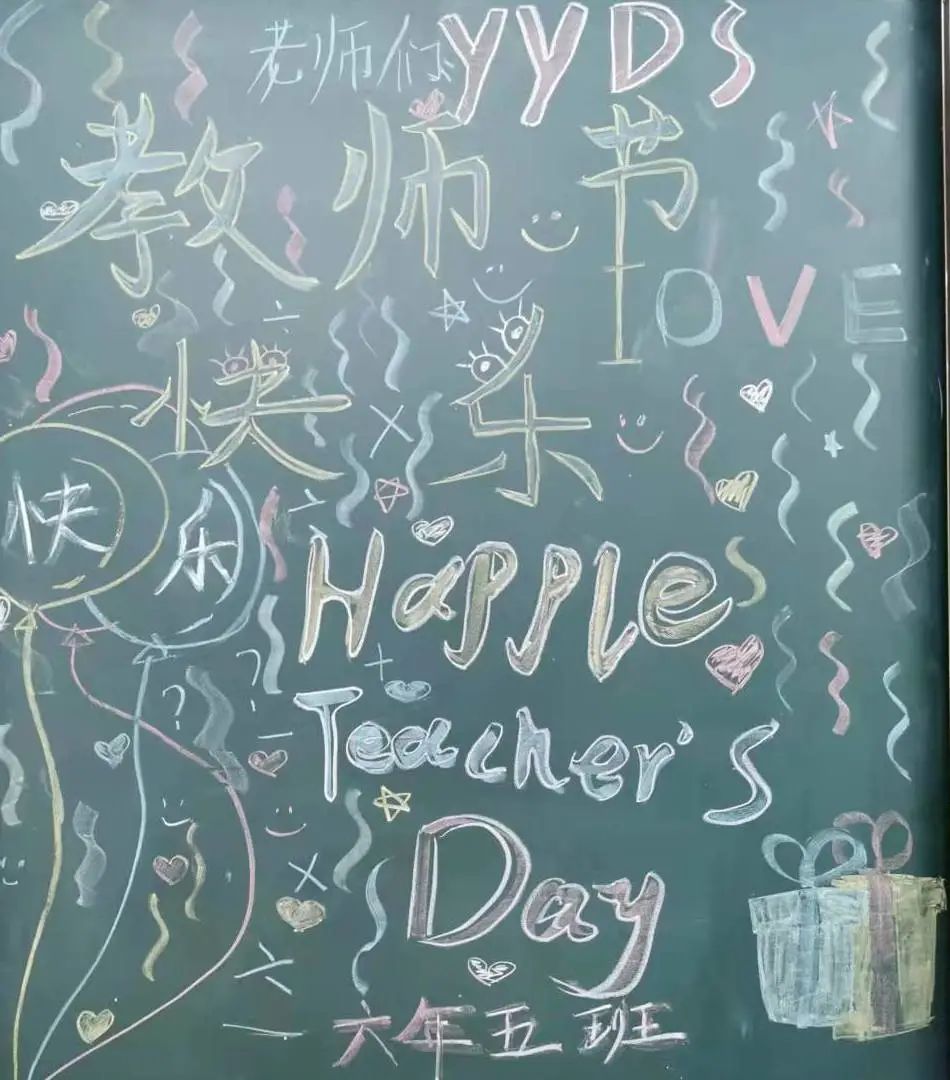 老师们YYDS
教师节
LOVE
快乐
快
乐
Happle
Teacher's
Day
六年五班